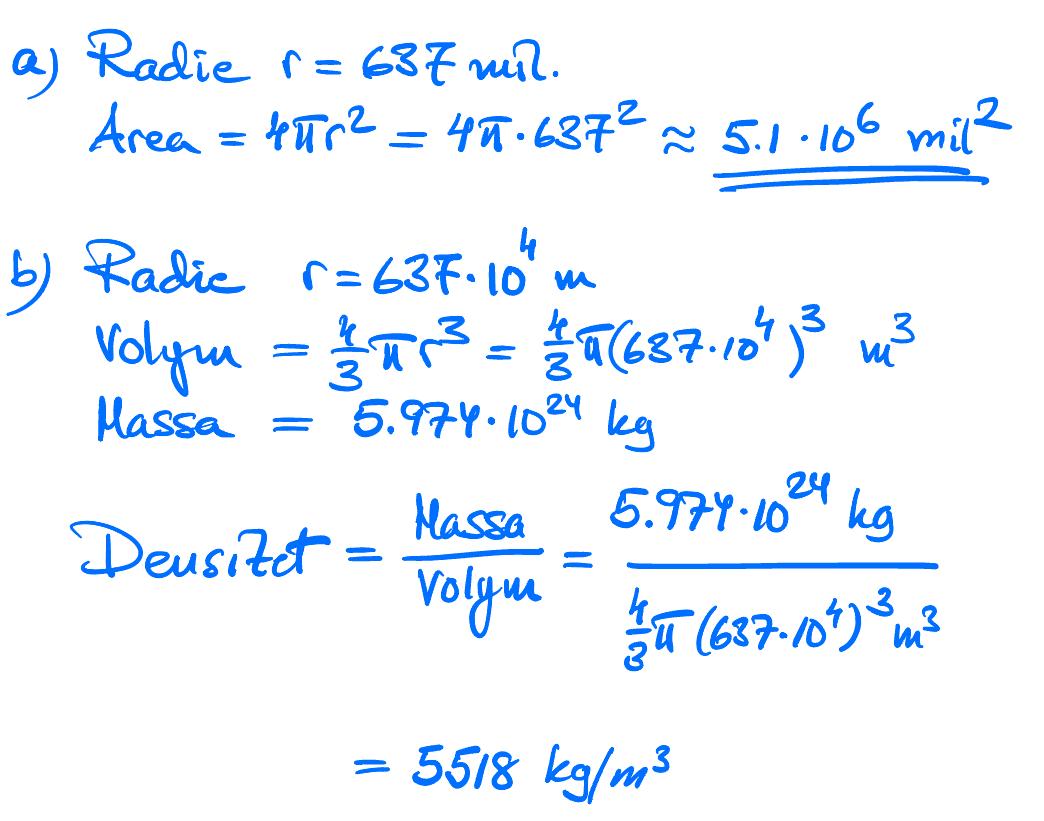 a) Radie r = 637 mil.
Area = 4πr² = 4π·637² ≈ 5.1·10⁶ mil²
b) Radie r = 637·10⁴ m
Volym = 4/3 πr³ = 4/3 π(637·10⁴)³ m³
Massa = 5.974·10²⁴ kg
Densitet = Massa/Volym = 5.974·10²⁴ kg / 4/3 π(637·10⁴)³ m³
= 5518 kg/m³